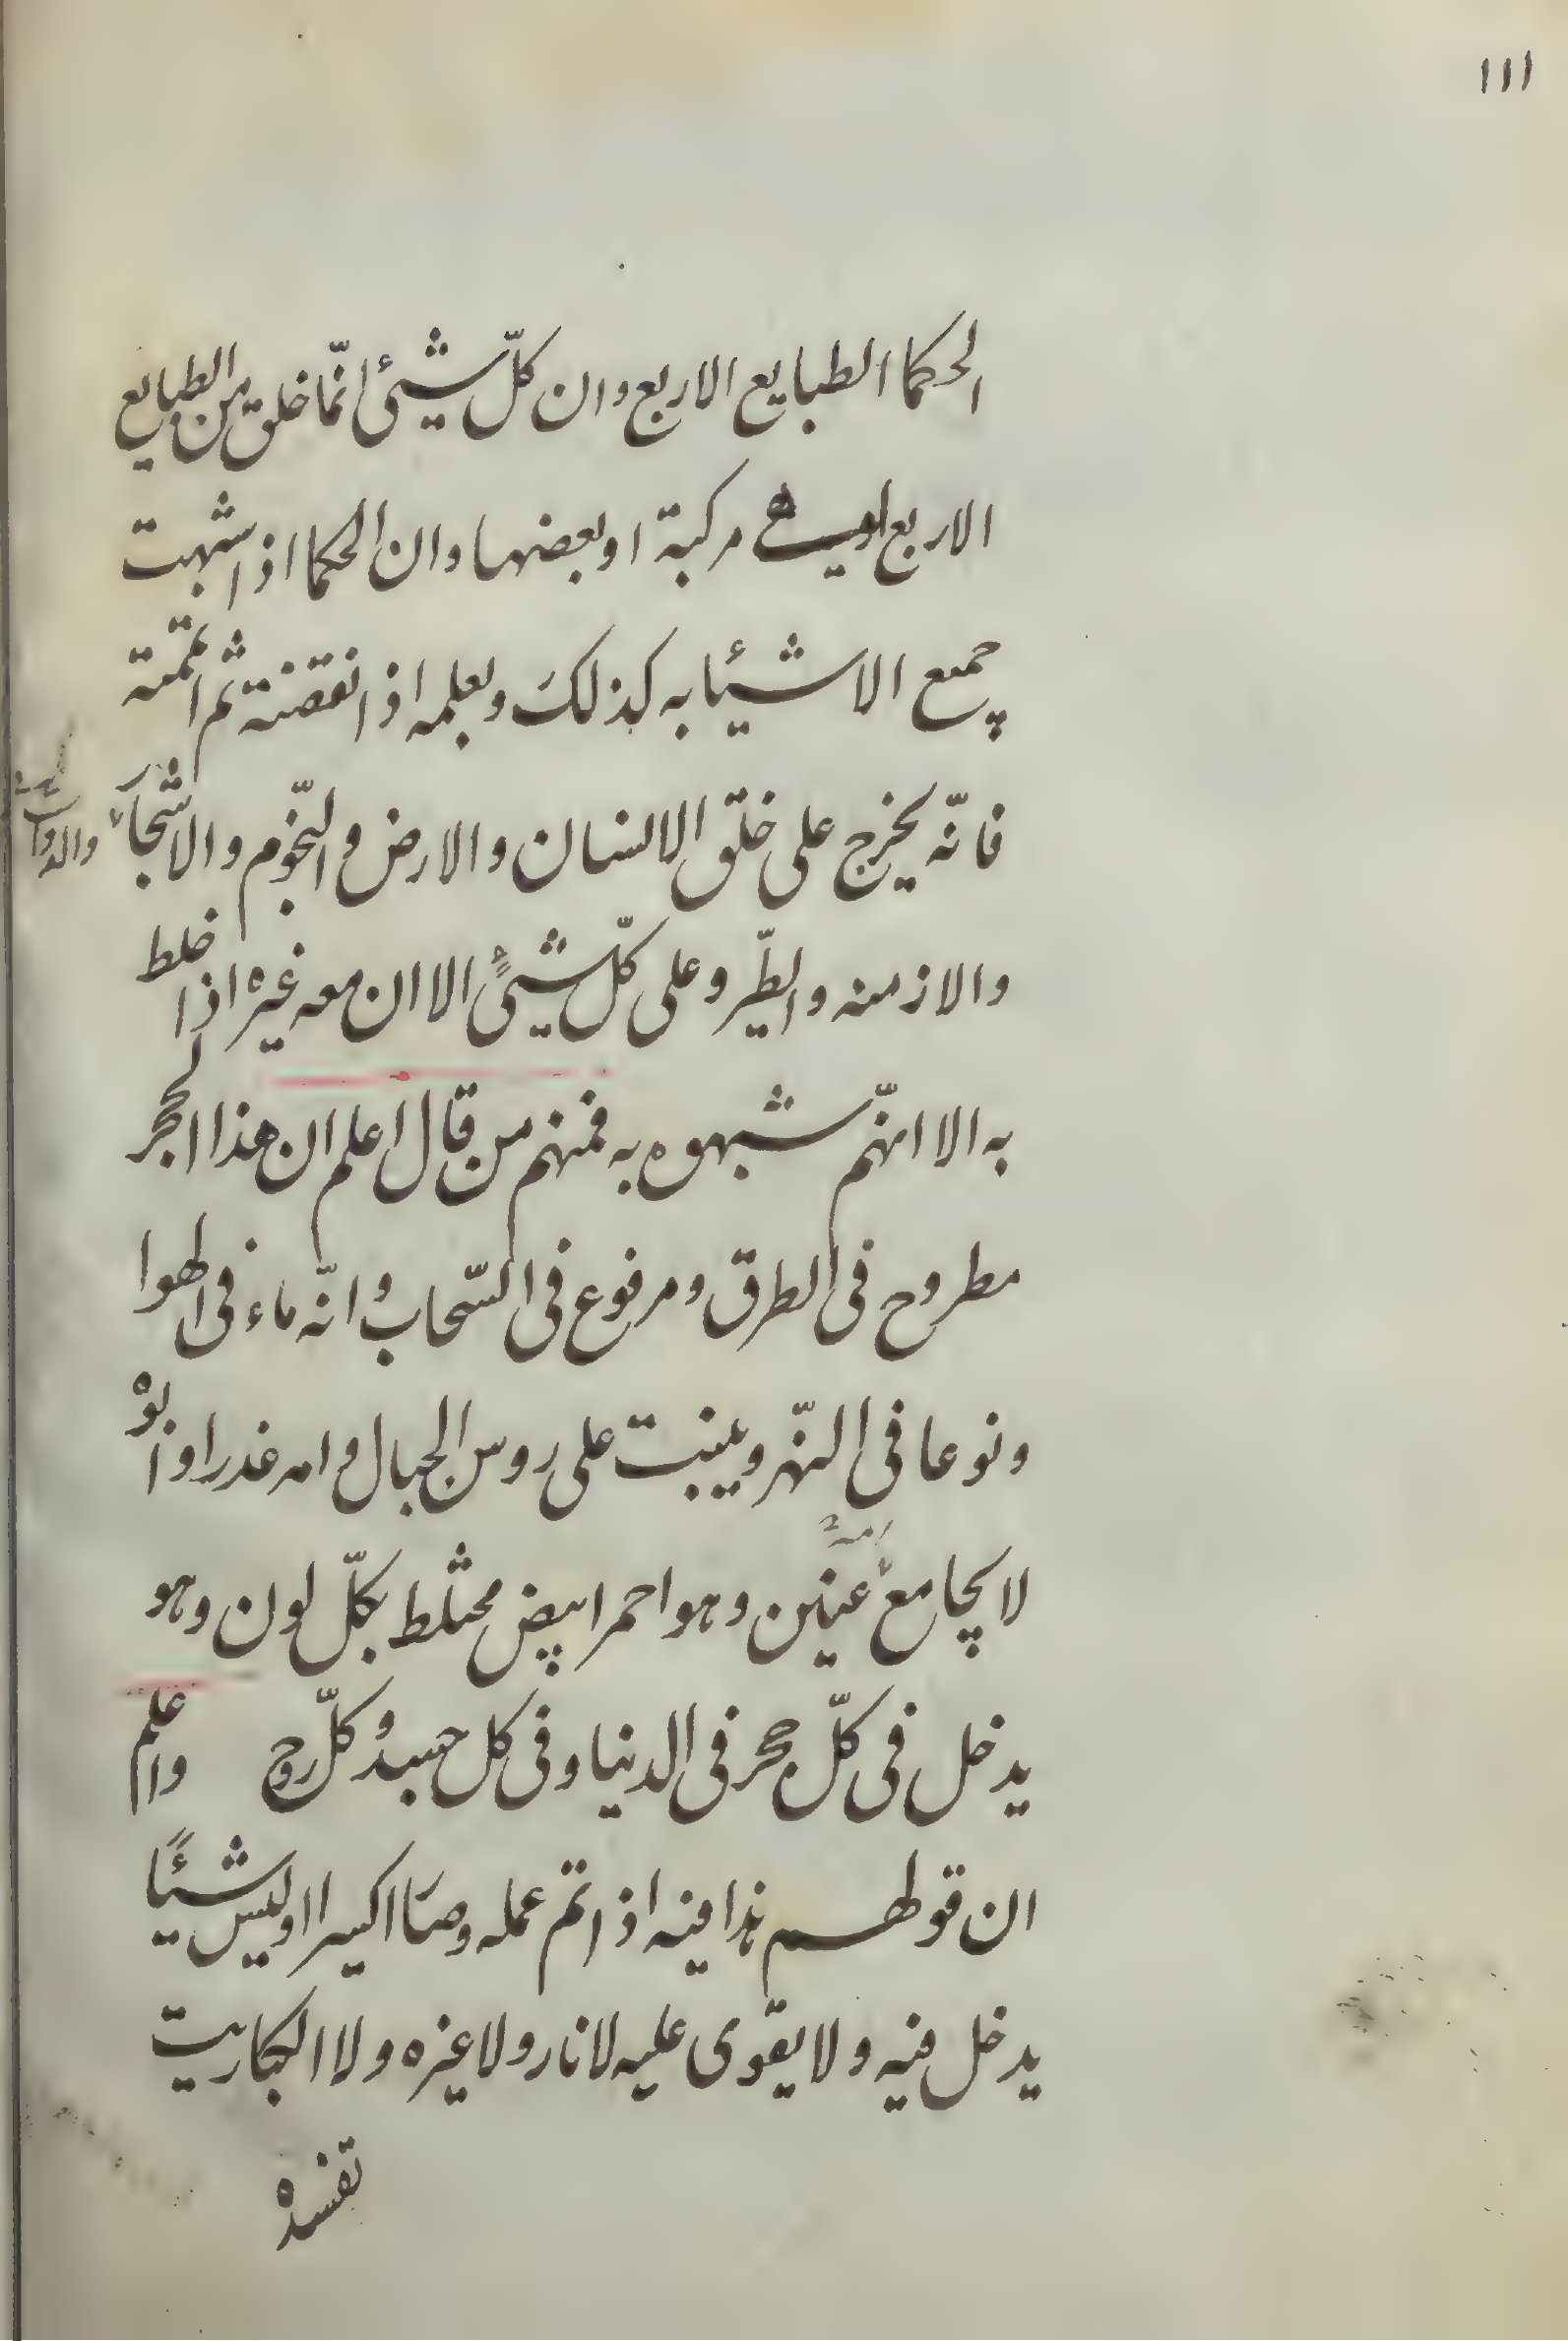 ١١١
الحكما الطبايع الاربع وان كلّ شيئ انّما خلق من الطبايع
الاربع مركبة او بعضها وان الحكما اذا شبهت
جميع الاشيئا به كذلك وبعلمه اذا نقضته ثم اتممته
فانّه يخرج على خلق الانسان والارض والنّجوم والاشجاء والدواب
والازمنه والطّير وعلى كلّ شيئ الا ان معه غيره اذا خلط
به الا انهّم شبهوه به فمنهم من قال اعلم ان هذا الحجر
مطروح فى الطرق ومرفوع فى السّحاب وانّه ماء فى الهوا
ونوعا فى النّهر وينبت على روس الجبال وامه غدرا وابوه
لا يجامع عنين وهو احمر ابيض مختلط بكلّ لون وهو
يدخل فى كلّ حجر فى الدنيا وفى كل جسد وكلّ روح واعلم
ان قولهم هذا فيه اذا تم عمله وصا اكسيرا اوليس شيئًا
يدخل فيه ولا يقوى عليه لا نار ولا غيره ولا الكباريت
تفسده